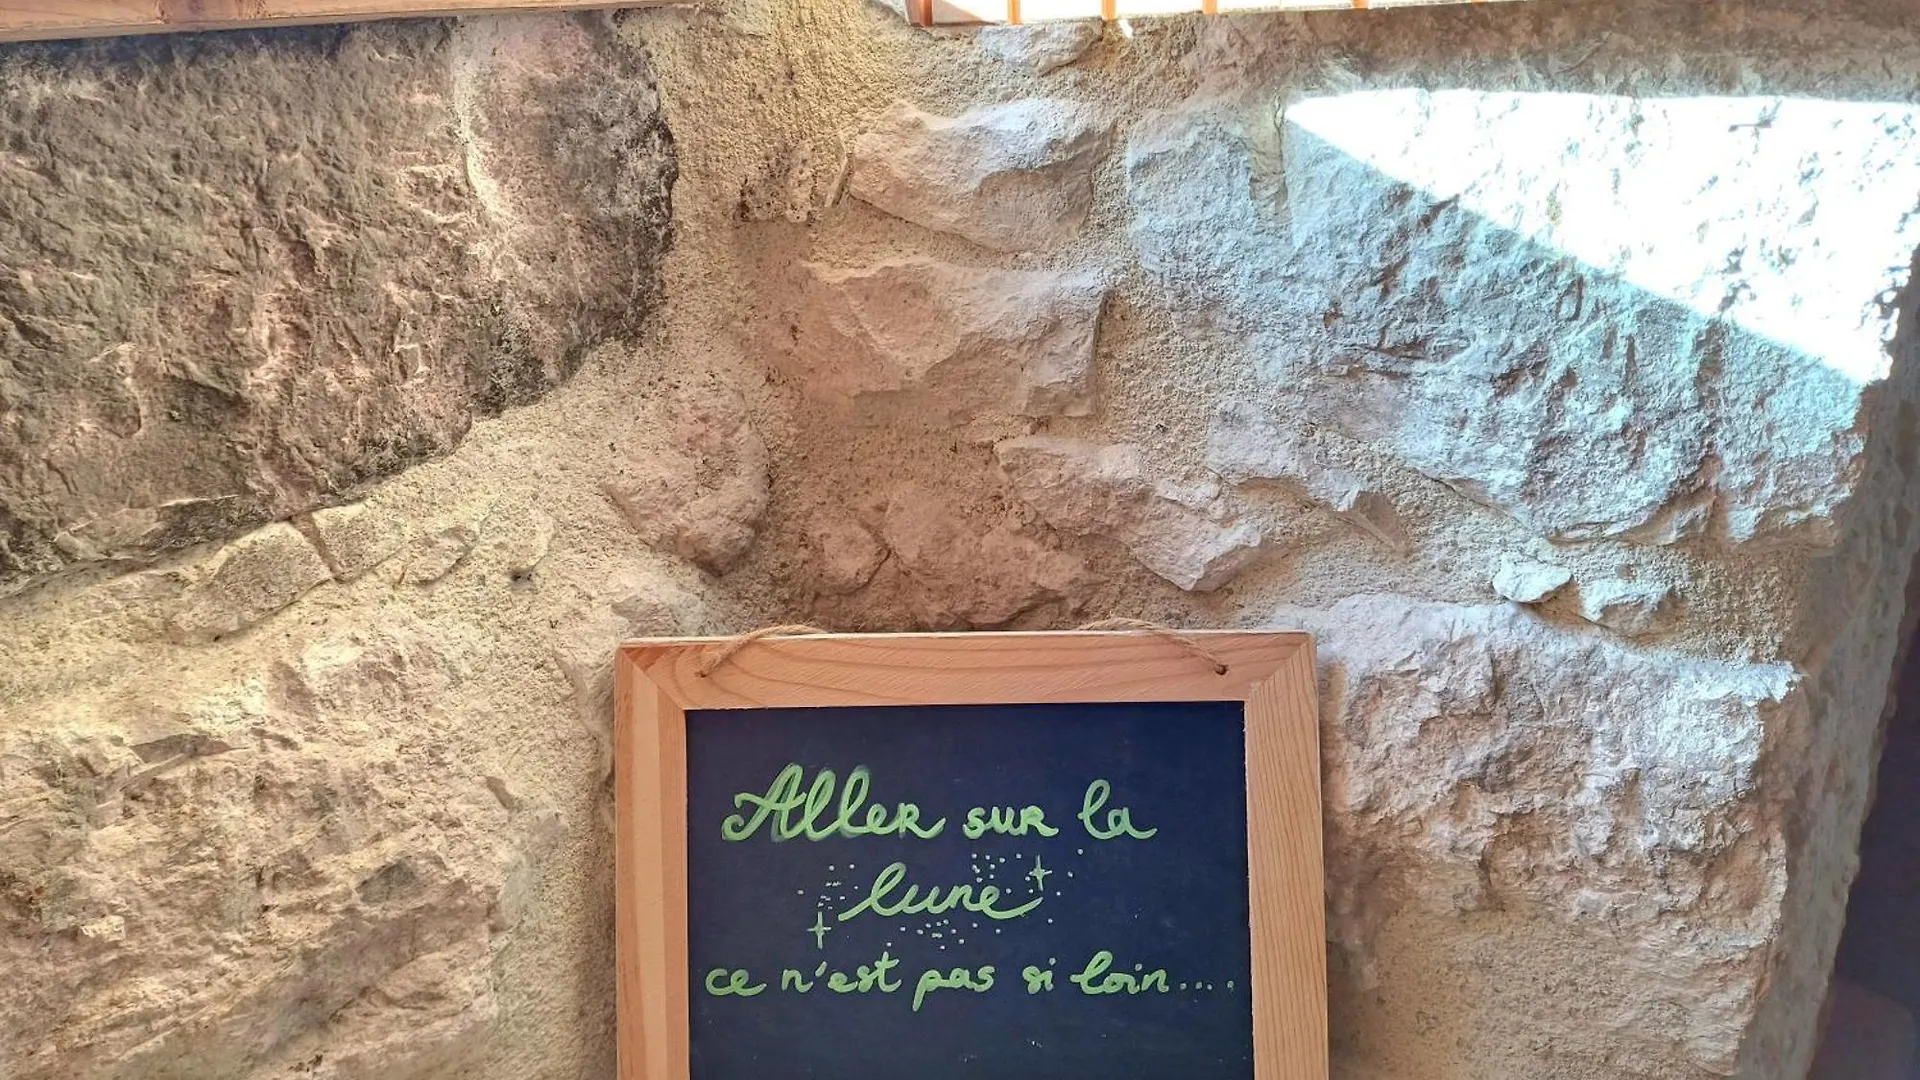 Aller sur la
lune
ce n'est pas si loin....